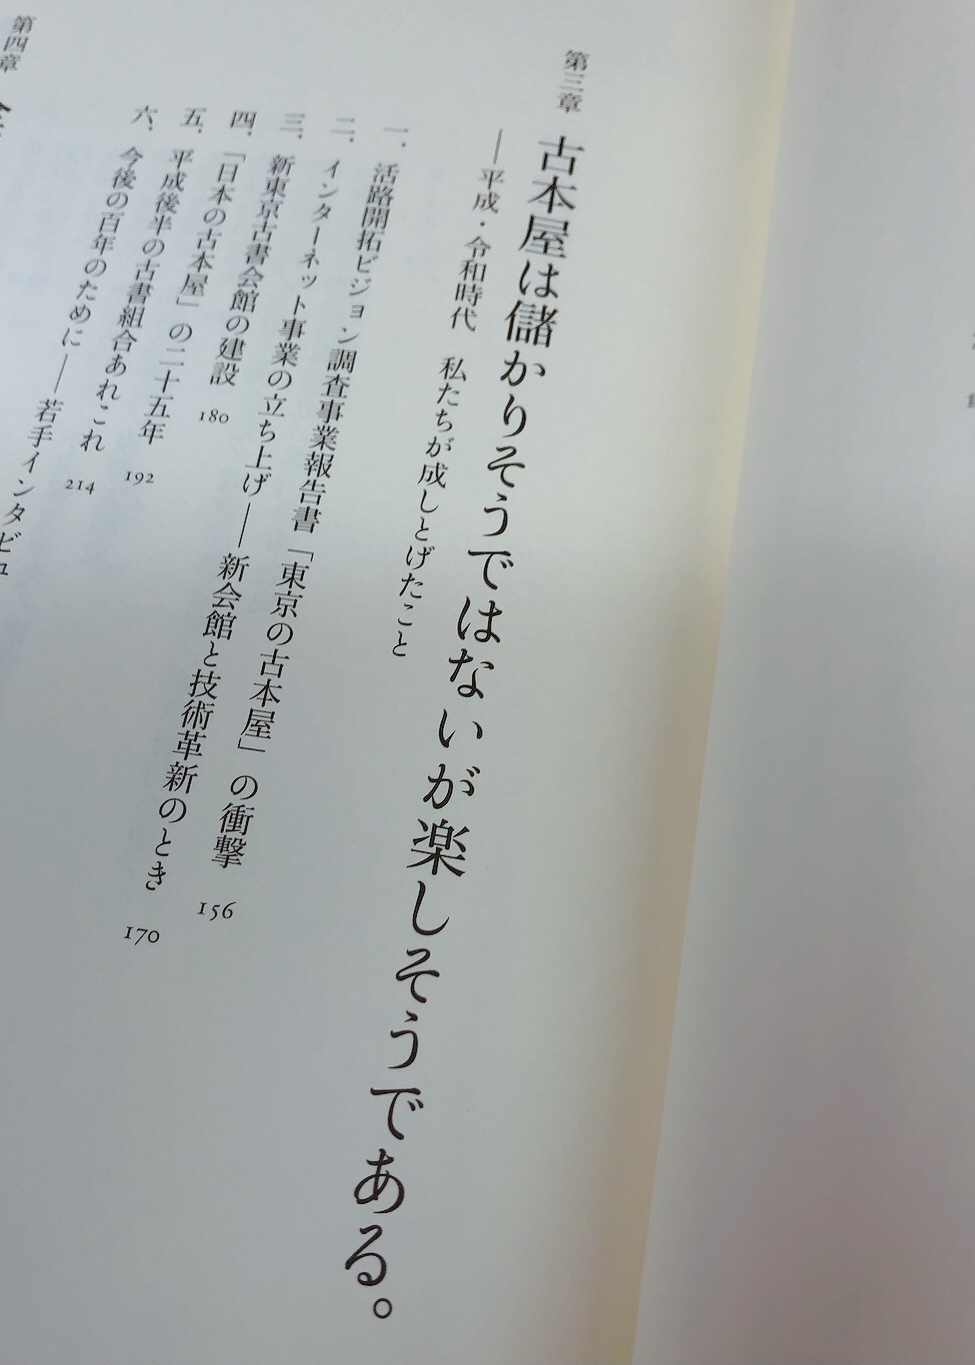 第三章 古本屋は儲かりそうではないが楽しそうである。
――平成・令和時代　私たちが成しとげたこと
一、活路開拓ビジョン調査事業報告書「東京の古本屋」の衝撃 156
二、インターネット事業の立ち上げ――新会館と技術革新のとき 170
三、新東京古書会館の建設 180
四、「日本の古本屋」の二十五年 192
五、平成後半の古書組合あれこれ 214
六、今後の百年のために――若手インタビュ
第四章